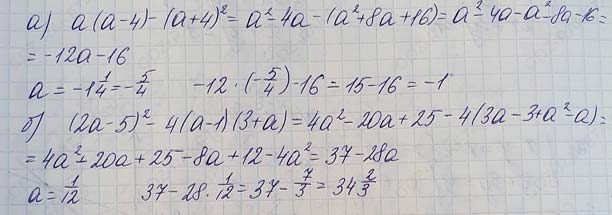 а) a(a-4)-(a+4)²= a²-4a-(a²+8a+16)=a²-4a-a²-8a-16=
=-12a-16
a=-1 1/4=-5/4 -12·(-5/4)-16=15-16=-1
б) (2a-5)²-4(a-1)(3+a)=4a²-20a+25-4(3a-3+a²-a)=
=4a²-20a+25-8a+12-4a²=37-28a
a=1/12 37-28·1/12=37-7/3=34 2/3